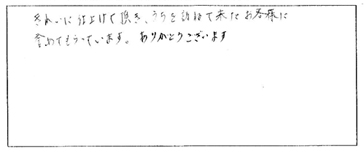 きれいに仕上げて頂き、うちを訪ねて来たお客様に
誉めてもらっています。ありがとうございます